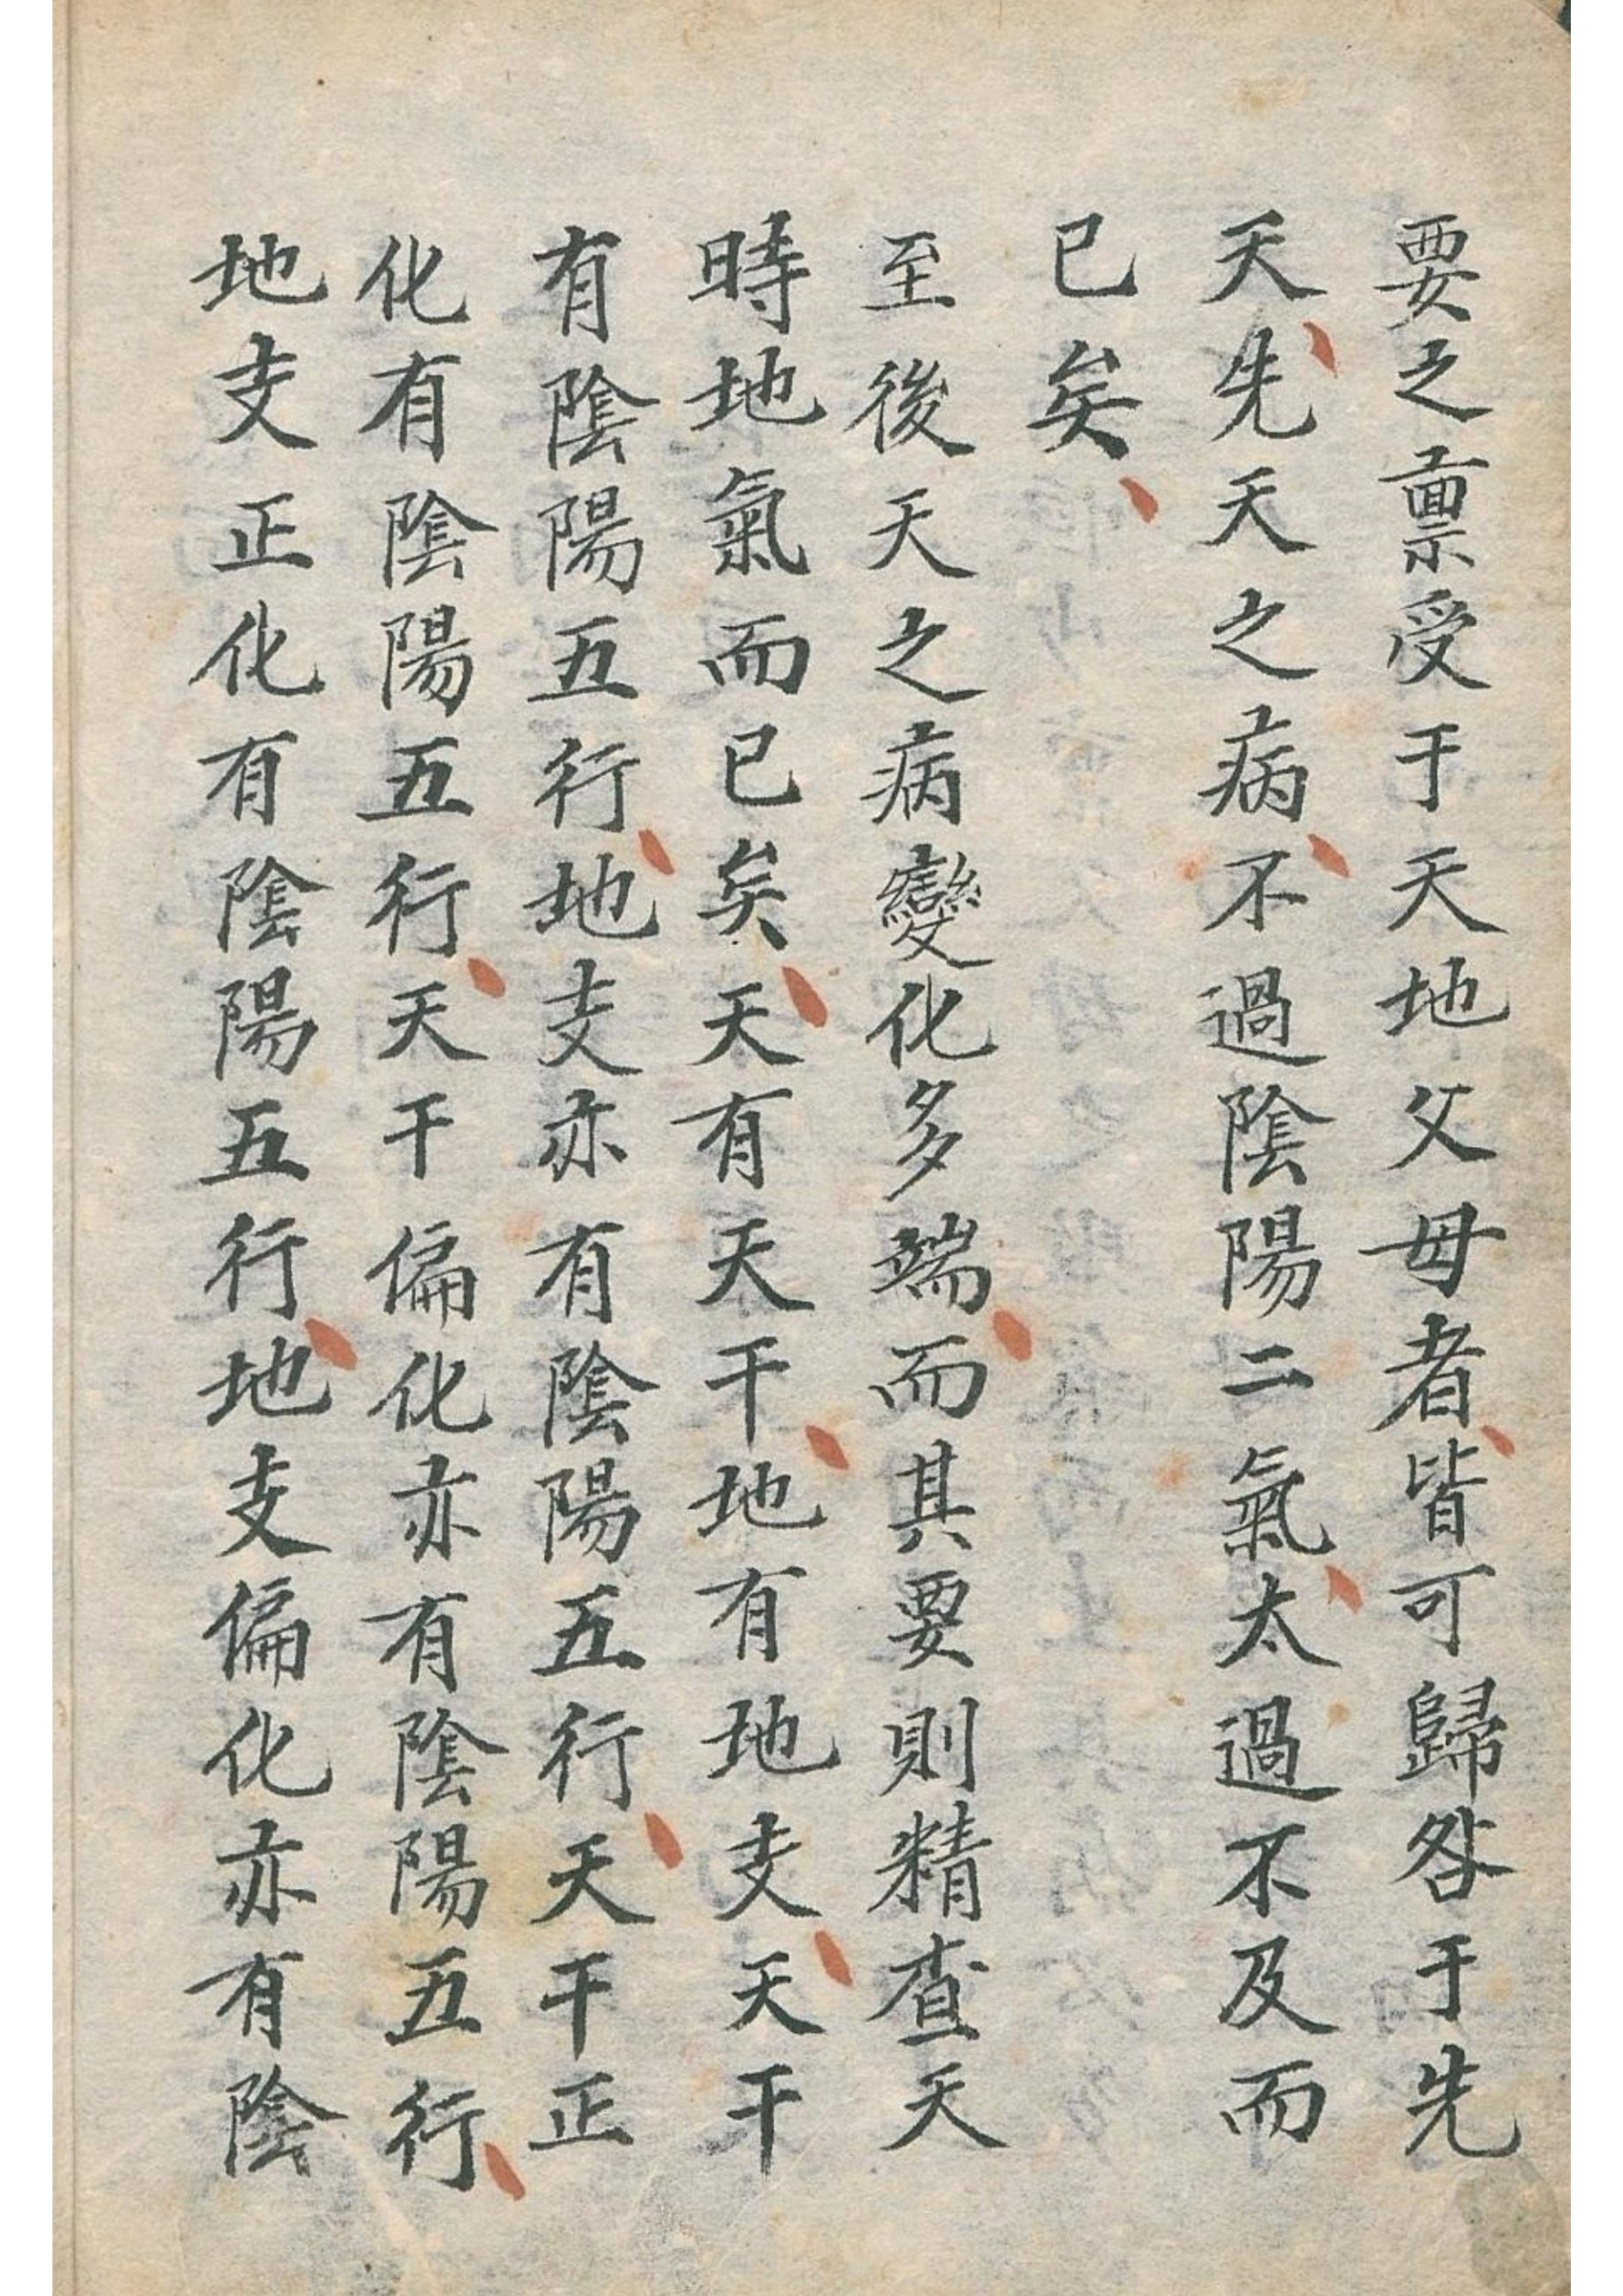 要之禀受于天地父母者、皆可歸咎于先
天、先天之病、不過陰陽二氣、太過不及而
已矣、
至後天之病變化多端、而其要則精查天
時地氣而已矣、天有天干、地有地支、天干
有陰陽五行、地支亦有陰陽五行、天干正
化有陰陽五行、天干偏化亦有陰陽五行、
地支正化有陰陽五行、地支偏化亦有陰